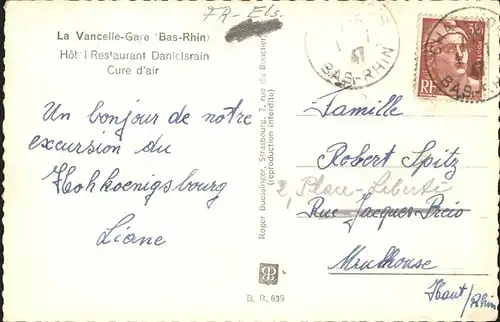 FR-Els.
La Vancelle-Gare (Bas-Rhin)
Hôtel Restaurant Danielsrain
Cure d'air
47
BAS-RHIN
BAS
RF
Un bonjour de notre
excursion du
Hohkoenigsbourg
Liane
Roger Buessinger, Strasbourg, 7, rue du Bouclier
(reproduction interdite)
B. R. 639
Famille
Robert Spitz
2, Place Liberté
Rue Jacques Preis
Mulhouse
Haut/Rhin